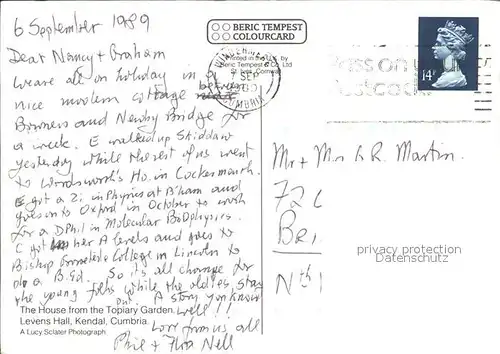 6 September 1989
BERIC TEMPEST
COLOURCARD
Printed in the U.K. by
Beric Tempest & Co. Ltd
St. Ives, Cornwall
Dear Nancy + Graham
We are all on holiday in a
nice modern cottage between
Bowness and Newby Bridge for
a week. E walked up Skiddaw
yesterday while the rest of us went
to Wordsworth's Ho. in Cockermouth.
E got a 2i in Physics at B'ham and
goes on to Oxford in October to work
for a DPhil in Molecular BioPhysics.
C got her A levels and goes to
Bishop Grosseteste College in Lincoln to
do a B.Ed. So it's all change for
the young folks while the oldies stay
put. A story you know
well!!
Love from us all
Phil + Flora Nell
The House from the Topiary Garden.
Levens Hall, Kendal, Cumbria.
A Lucy Sclater Photograph.
WINDERMERE
SEP
CUMBRIA
Pass on
14P
Mr + Mrs R Martin.
72
Be
N
privacy protection
Datenschutz